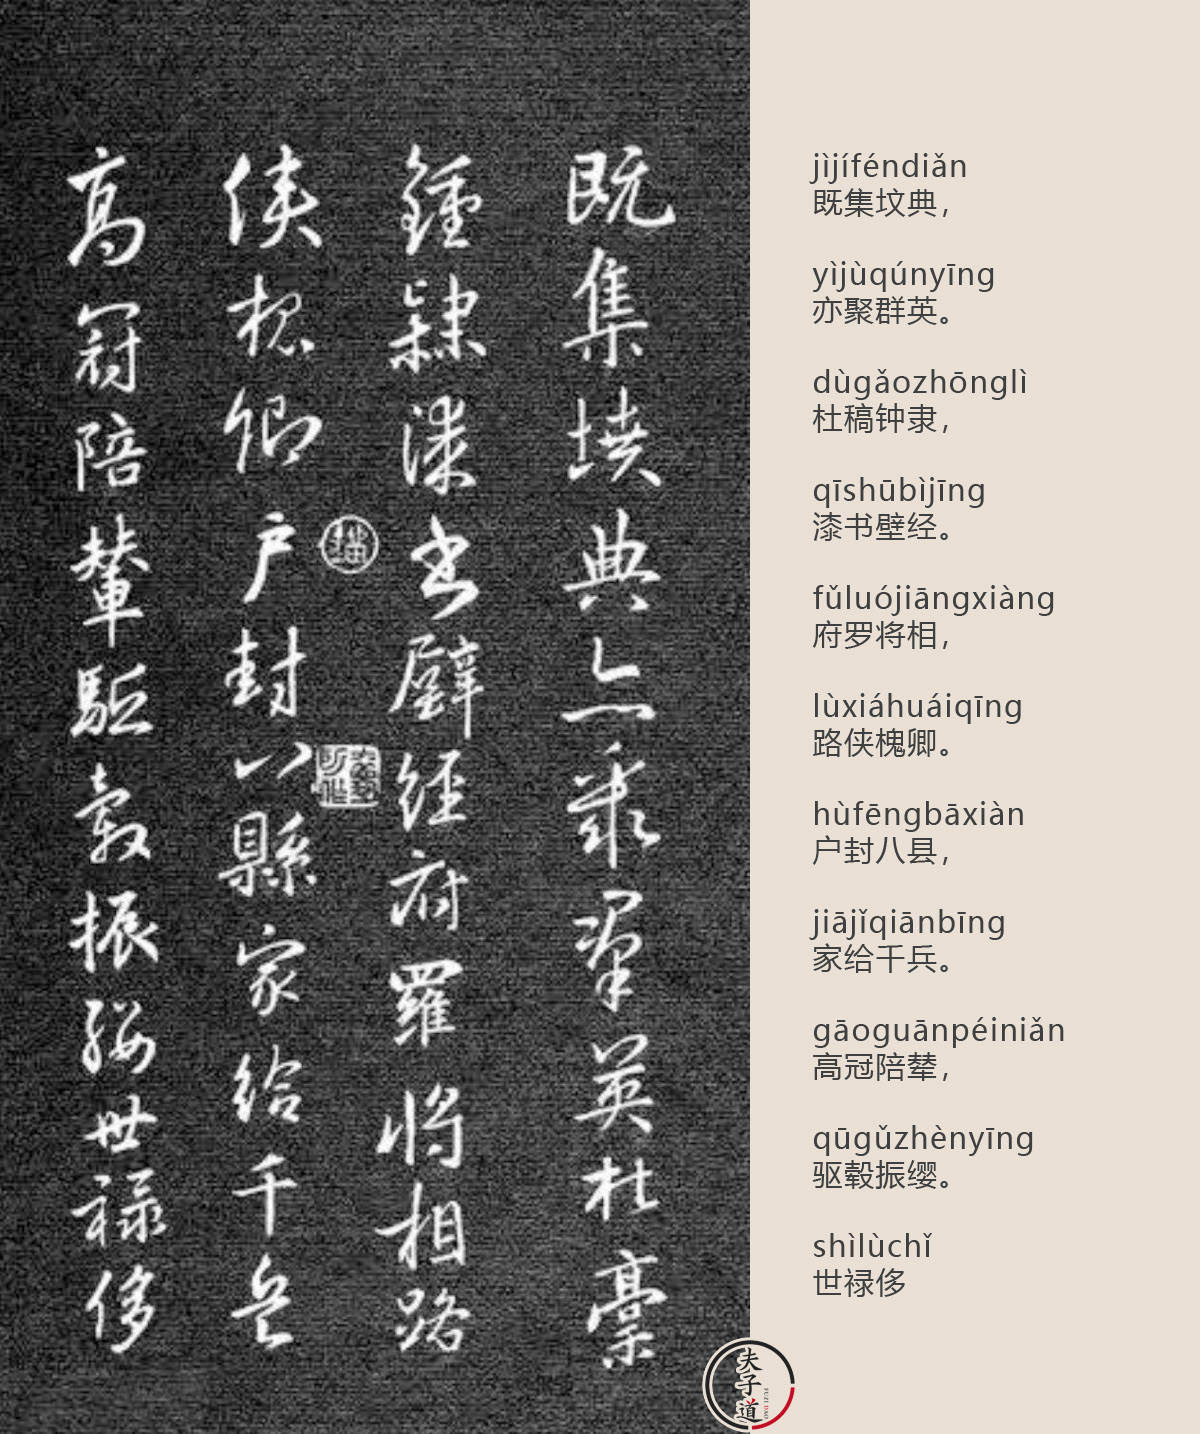 既集墳典亦聚羣英杜稾
鍾隸漆書壁經府羅將相路
俠槐卿户封八縣家給千兵
高冠陪輦驅轂振纓世禄侈
jìjíféndiǎn
既集坟典，
yìjùqúnyīng
亦聚群英。
dùgǎozhōnglì
杜稿钟隶，
qīshūbìjīng
漆书壁经。
fǔluójiāngxiàng
府罗将相，
lùxiáhuáiqīng
路侠槐卿。
hùfēngbāxiàn
户封八县，
jiājǐqiānbīng
家给千兵。
gāoguānpéiniǎn
高冠陪辇，
qūgǔzhènyīng
驱毂振缨。
shìlùchǐ
世禄侈
夫子道
FUZI DAO